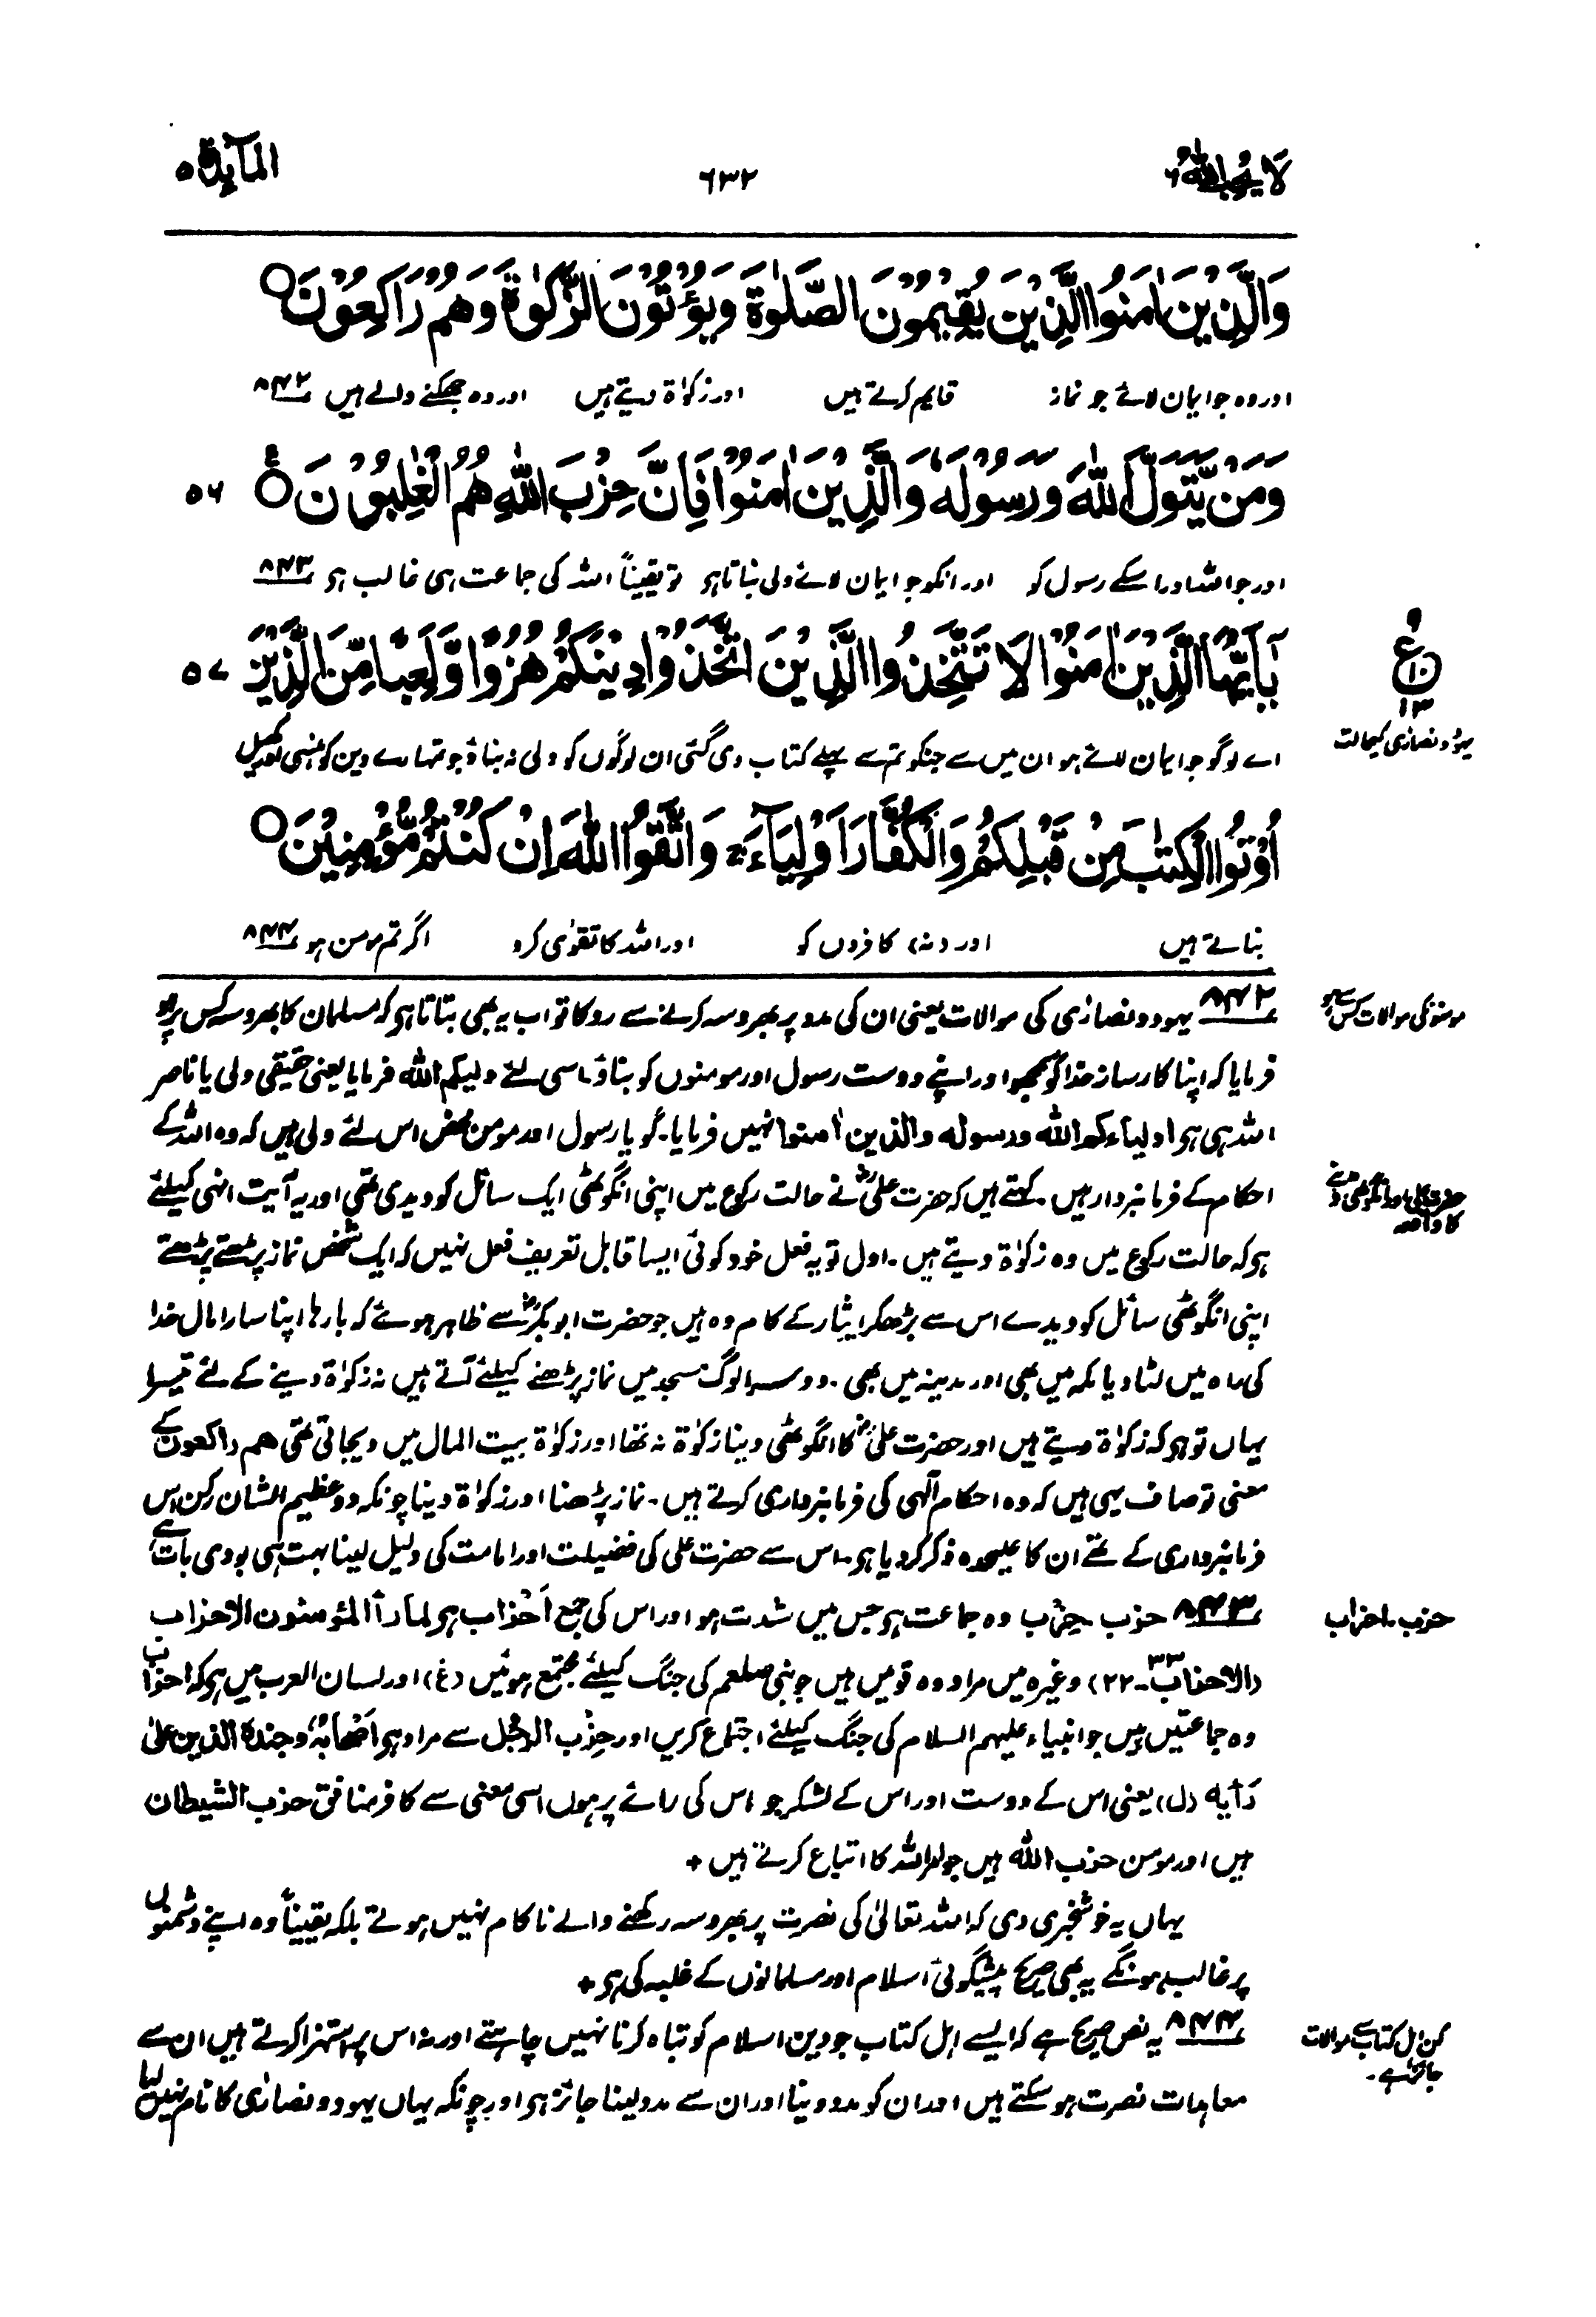 لَا یُحِبُّ اللّٰهُ ۶
۶۳۲
المآئدة ۵
وَالَّذِیْنَ اٰمَنُوا الَّذِیْنَ یُقِیْمُوْنَ الصَّلٰوةَ وَیُؤْتُوْنَ الزَّكٰوةَ وَهُمْ رٰكِعُوْنَ ○
اور وہ جو ایمان لائے جو نماز قایم کرتے ہیں اور زکوٰۃ دیتے ہیں اور وہ جھکنے والے ہیں ۸۴۲
وَمَنْ یَّتَوَلَّ اللّٰهَ وَرَسُوْلَهٗ وَالَّذِیْنَ اٰمَنُوْا فَاِنَّ حِزْبَ اللّٰهِ هُمُ الْغٰلِبُوْنَ ○ ۵۶
اور جو اللہ اور اسکے رسول کو اور انکو جو ایمان لائے ولی بناتا ہو تو یقیناً اللہ کی جماعت ہی غالب ہو ۸۴۳
یٰۤاَیُّهَا الَّذِیْنَ اٰمَنُوْا لَا تَتَّخِذُوا الَّذِیْنَ اتَّخَذُوْا دِیْنَكُمْ هُزُوًا وَّلَعِبًا مِّنَ الَّذِیْنَ ۵۷
ع
۱۳
یہود و نصاریٰ کی حالت
اے لوگو جو ایمان لائے ہو ان میں سے جنکو تم سے پہلے کتاب دی گئی ان لوگوں کو ولی نہ بناؤ جو تمہارے دین کو ہنسی اور کھیل
اُوْتُوا الْكِتٰبَ مِنْ قَبْلِكُمْ وَالْكُفَّارَ اَوْلِیَآءَ ۚ وَاتَّقُوا اللّٰهَ اِنْ كُنْتُمْ مُّؤْمِنِیْنَ ○
بناتے ہیں اور (نہ) کافروں کو اور اللہ کا تقویٰ کرو اگر تم مومن ہو ۸۴۴
۸۴۲ یہود و نصاریٰ کی موالات یعنی ان کی مدد پر بھروسہ کرنے سے روکا تو اب یہ بھی بتاتا ہو کہ مسلمان کا بھروسہ کس پر ہو
مومنوں کی موالات کس سے ہو
فرمایا کہ اپنا کارساز خدا کو سمجھو اور اپنے دوست رسول اور مومنوں کو بناؤ۔ اسی لئے ولیکم اللہ فرمایا یعنی حقیقی ولی یا ناصر
اللہ ہی ہو اولیاءکم اللہ ورسولہ والذین اٰمنوا نہیں فرمایا۔ گویا رسول اور مومن محض اس لئے ولی ہیں کہ وہ اللہ کے
احکام کے فرمانبردار ہیں۔ کہتے ہیں کہ حضرت علیؓ نے حالت رکوع میں اپنی انگوٹھی ایک سائل کو دیدی تھی اور یہ آیت انہی کیلئے
حضرت علی اور انگوٹھی دینے
کا واقعہ
ہو کہ حالت رکوع میں وہ زکوٰۃ دیتے ہیں۔ اول تو یہ فعل خود کوئی ایسا قابل تعریف فعل نہیں کہ ایک شخص نماز پڑھتے پڑھتے
اپنی انگوٹھی سائل کو دیدے اس سے بڑھکر ایثار کے کام وہ ہیں جو حضرت ابوبکرؓ سے ظاہر ہوئے کہ بارہا اپنا سارا مال خدا
کی راہ میں لٹا دیا مکہ میں بھی اور مدینہ میں بھی۔ دوسرا لوگ مسجد میں نماز پڑھنے کیلئے آتے ہیں نہ زکوٰۃ دینے کے لئے تیسرا
یہاں تو ہو کہ زکوٰۃ دیتے ہیں اور حضرت علیؓ کا انگوٹھی دینا زکوٰۃ نہ تھا اور زکوٰۃ بیت المال میں دیجاتی تھی ھم راکعون کے
معنی تو صاف یہی ہیں کہ وہ احکام الٰہی کی فرمانبرداری کرتے ہیں۔ نماز پڑھنا اور زکوٰۃ دینا چونکہ دو عظیم الشان رکن اس
فرمانبرداری کے تھے ان کا علیحدہ ذکر کردیا ہو۔ اس سے حضرت علی کی فضیلت اور امامت کی دلیل لینا بہت ہی بودی بات ہے
۸۴۳ حزب۔ حِزْب وہ جماعت ہو جس میں شدت ہو اور اس کی جمع اَحْزاب ہو لما رأ المؤمنون الاحزاب
حزب۔ احزاب
(الاحزاب ۳۳۔۲۲) وغیرہ میں مراد وہ قومیں ہیں جو نبی صلعم کی جنگ کیلئے مجتمع ہوئیں (غ) اور لسان العرب میں ہو کہ احزاب
وہ جماعتیں ہیں جو انبیاء علیہم السلام کی جنگ کیلئے اجتماع کریں اور حِزْب الرجُل سے مراد ہو اَصْحَابُہٗ وجندہ الذین علیٰ
رَأیہ (ل) یعنی اس کے دوست اور اس کے لشکر جو اس کی رائے پر ہوں اسی معنی سے کافر منافق حزب الشیطان
ہیں اور مومن حزب اللہ ہیں جو امر اللہ کا اتباع کرتے ہیں +
یہاں یہ خوشخبری دی کہ اللہ تعالیٰ کی نصرت پر بھروسہ رکھنے والے ناکام نہیں ہوتے بلکہ یقیناً وہ اپنے دشمنوں
پر غالب ہونگے یہ بھی صریح پیشگوئی اسلام اور مسلمانوں کے غلبہ کی ہو +
۸۴۴ یہ نص صریح ہے کہ ایسے اہل کتاب جو دین اسلام کو تباہ کرنا نہیں چاہتے اور نہ اس پر استہزا کرتے ہیں ان سے
کن اہل کتاب سے موالات
جائز ہے۔
معاہدات نصرت ہو سکتے ہیں اور ان کو مدد دینا اور ان سے مدد لینا جائز ہو اور چونکہ یہاں یہود و نصاریٰ کا نام نہیں لیا